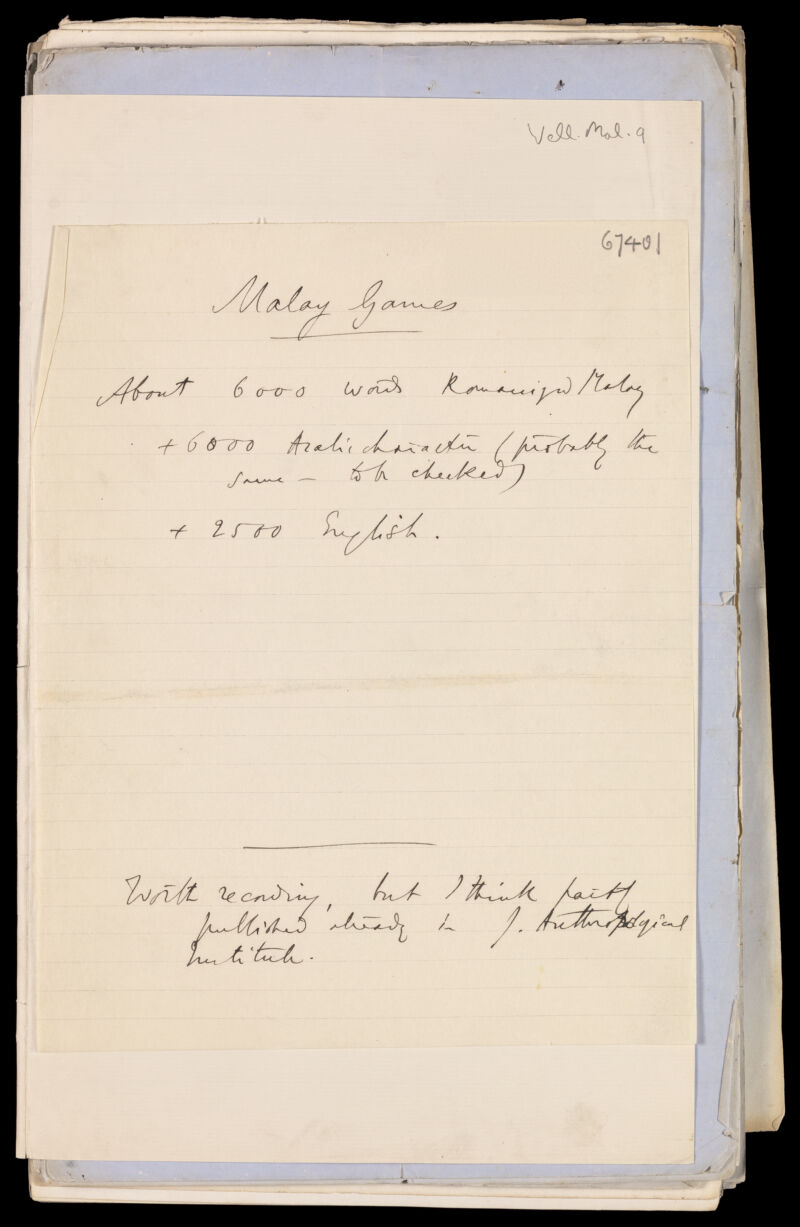 Well. Mal. 9
67401
Malay Games
About 6000 words Romanized Malay
+ 6000 Arabic character (probably the
same – to be checked)
+ 2500 English.
Worth recording, but I think partly
published already in J. Anthropological
Institute.